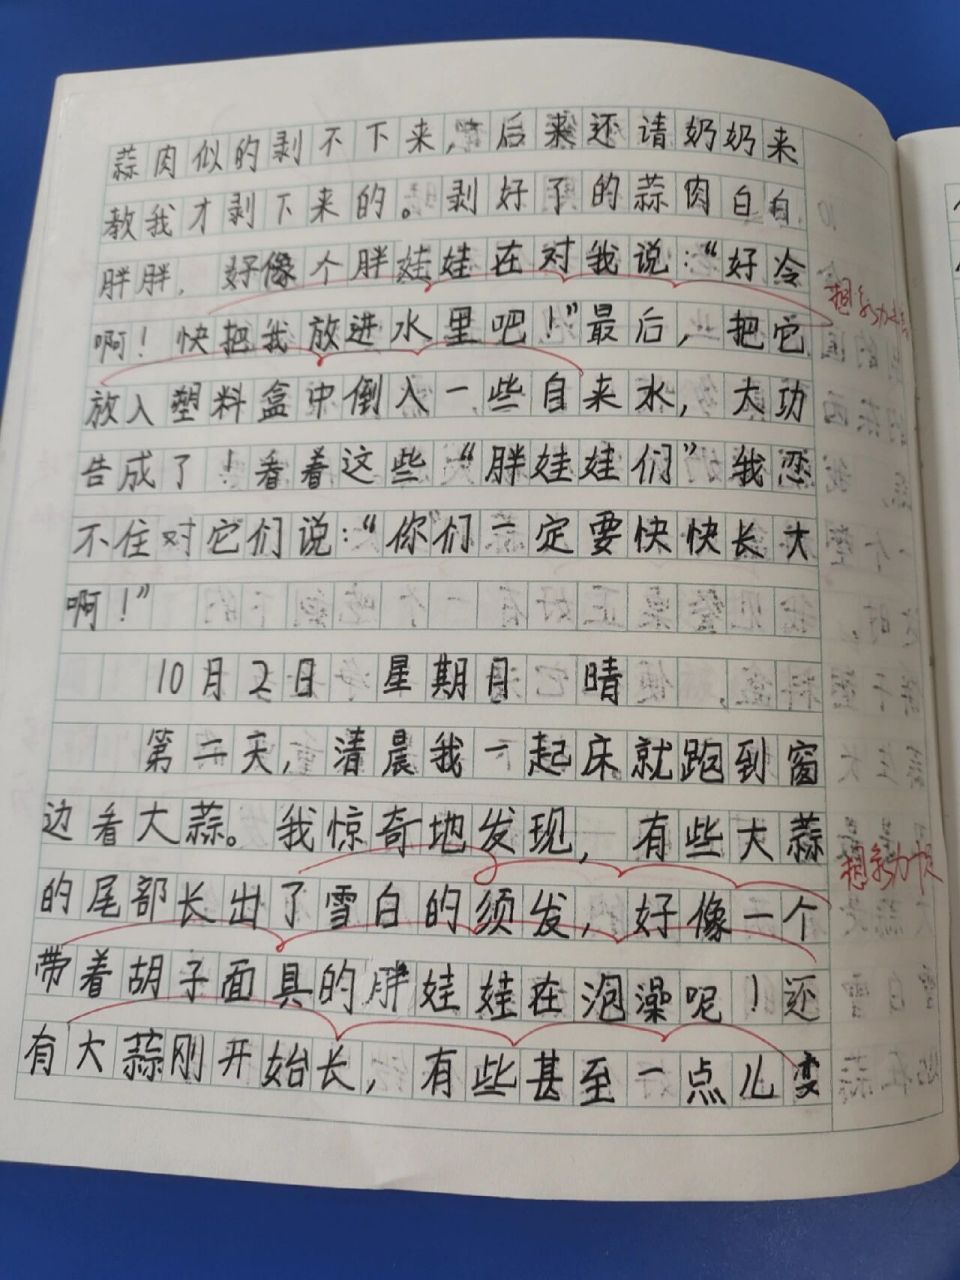 蒜肉似的剥不下来，后来还请奶奶来
教我才剥下来的。剥好了的蒜肉白白
胖胖，好像个胖娃娃在对我说：“好冷
啊！快把我放进水里吧！”最后，把它
放入塑料盒中倒入一些自来水，大功
告成了！看着这些“胖娃娃们”我忍
不住对它们说：“你们一定要快快长大
啊！”
10月2日 星期月 晴
第二天，清晨我一起床就跑到窗
边看大蒜。我惊奇地发现，有些大蒜
的尾部长出了雪白的须发，好像一个
带着胡子面具的胖娃娃在泡澡呢！还
有大蒜刚开始长，有些甚至一点儿变
想象力
想象力